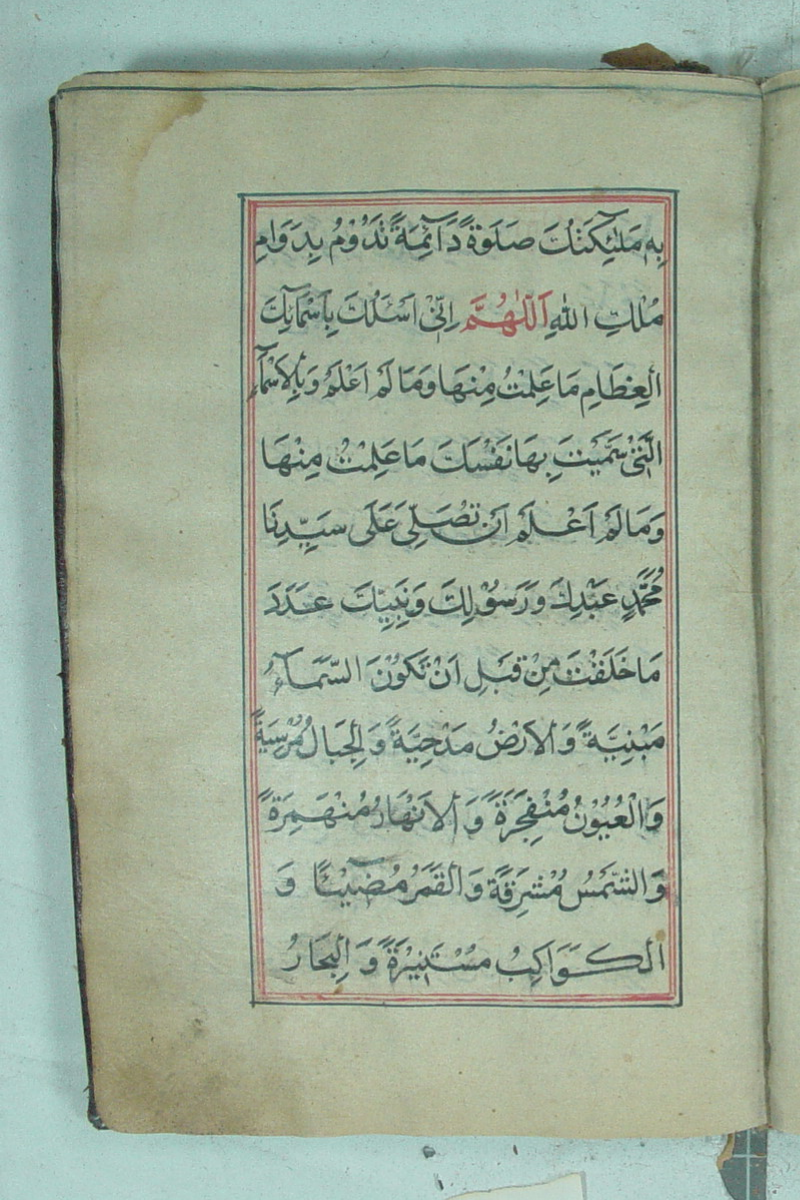 بِهٖ مَلٰٓئِكَتُكَ صَلَوٰةً دَآئِمَةً تَدُوْمُ بِدَوَامِ
مُلْكِ اللّٰهِ اَللّٰهُمَّ اِنِّىْ اَسْئَلُكَ بِاَسْمَآئِكَ
الْعِظَامِ مَا عَلِمْتُ مِنْهَا وَمَا لَمْ اَعْلَمْ وَبِالْاَسْمَآءِ
الَّتِىْ سَمَّيْتَ بِهَا نَفْسَكَ مَا عَلِمْتُ مِنْهَا
وَمَا لَمْ اَعْلَمْ اَنْ تُصَلِّىَ عَلَى سَيِّدِنَا
مُحَمَّدٍ عَبْدِكَ وَرَسُوْلِكَ وَنَبِيِّكَ عَدَدَ
مَا خَلَقْتَ مِنْ قَبْلِ اَنْ تَكُوْنَ السَّمَآءُ
مَبْنِيَّةً وَالْاَرْضُ مَدْحِيَّةً وَالْجِبَالُ مُرْسِيَةً
وَالْعُيُوْنُ مُنْفَجِرَةً وَالْاَنْهَارُ مُنْهَمِرَةً
وَالشَّمْسُ مُشْرِقَةً وَالْقَمَرُ مُضِيْئًا وَ
الْكَوَاكِبُ مُسْتَنِيْرَةً وَالْبِحَارُ